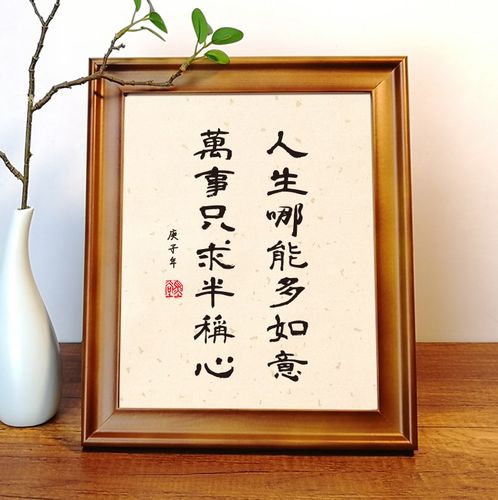 人生哪能多如意
萬事只求半稱心
庚子年